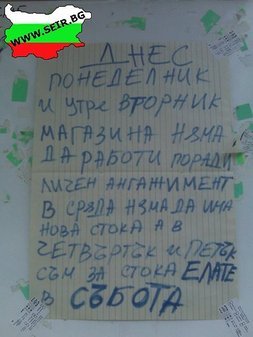 WWW.SEIR.BG
ДНЕС
ПОНЕДЕЛНИК
И УТРЕ ВТОРНИК
МАГАЗИНА НЯМА
ДА РАБОТИ ПОРАДИ
ЛИЧЕН АНГАЖИМЕНТ
В СРЯДА НЯМА ДА ИМА
НОВА СТОКА А В
ЧЕТВЪРТЪК И ПЕТЪК
СЪМ ЗА СТОКА ЕЛАТЕ
В СЪБОТА